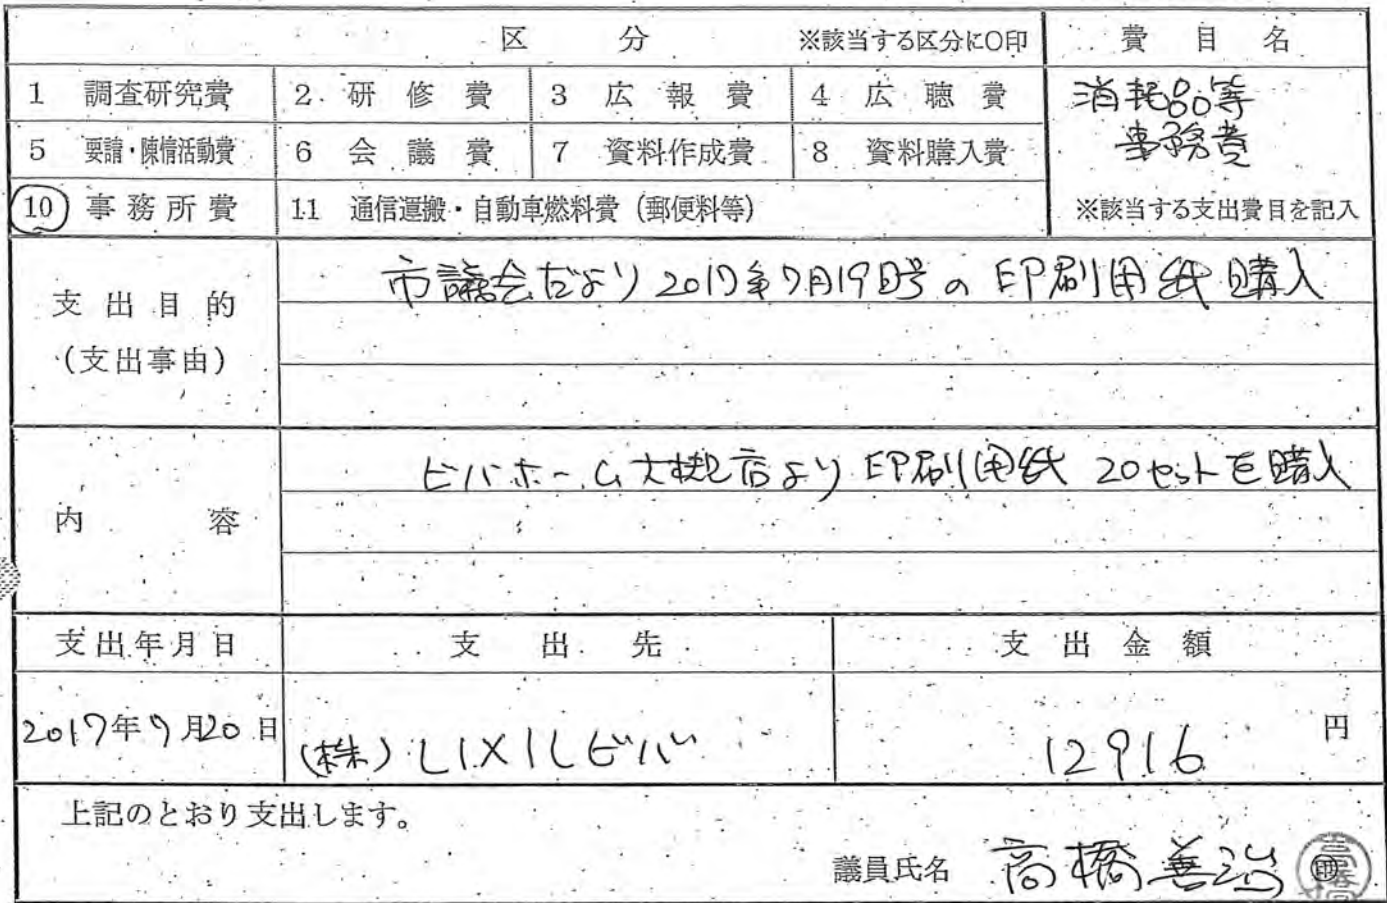 区分 ※該当する区分に〇印 費目名
1 調査研究費 2 研修費 3 広報費 4 広聴費 消耗品等
5 要請・陳情活動費 6 会議費 7 資料作成費 8 資料購入費 事務費
10 事務所費 11 通信運搬・自動車燃料費(郵便料等) ※該当する支出費目を記入
支出目的
(支出事由)
市議会だより2017年7月19日号の印刷用紙購入
内容
ビバホーム大槻店より印刷用紙20セットを購入
支出年月日 支出先 支出金額
2017年7月20日 (株)LIXILビバ 12916円
上記のとおり支出します。
議員氏名 高橋善治 印